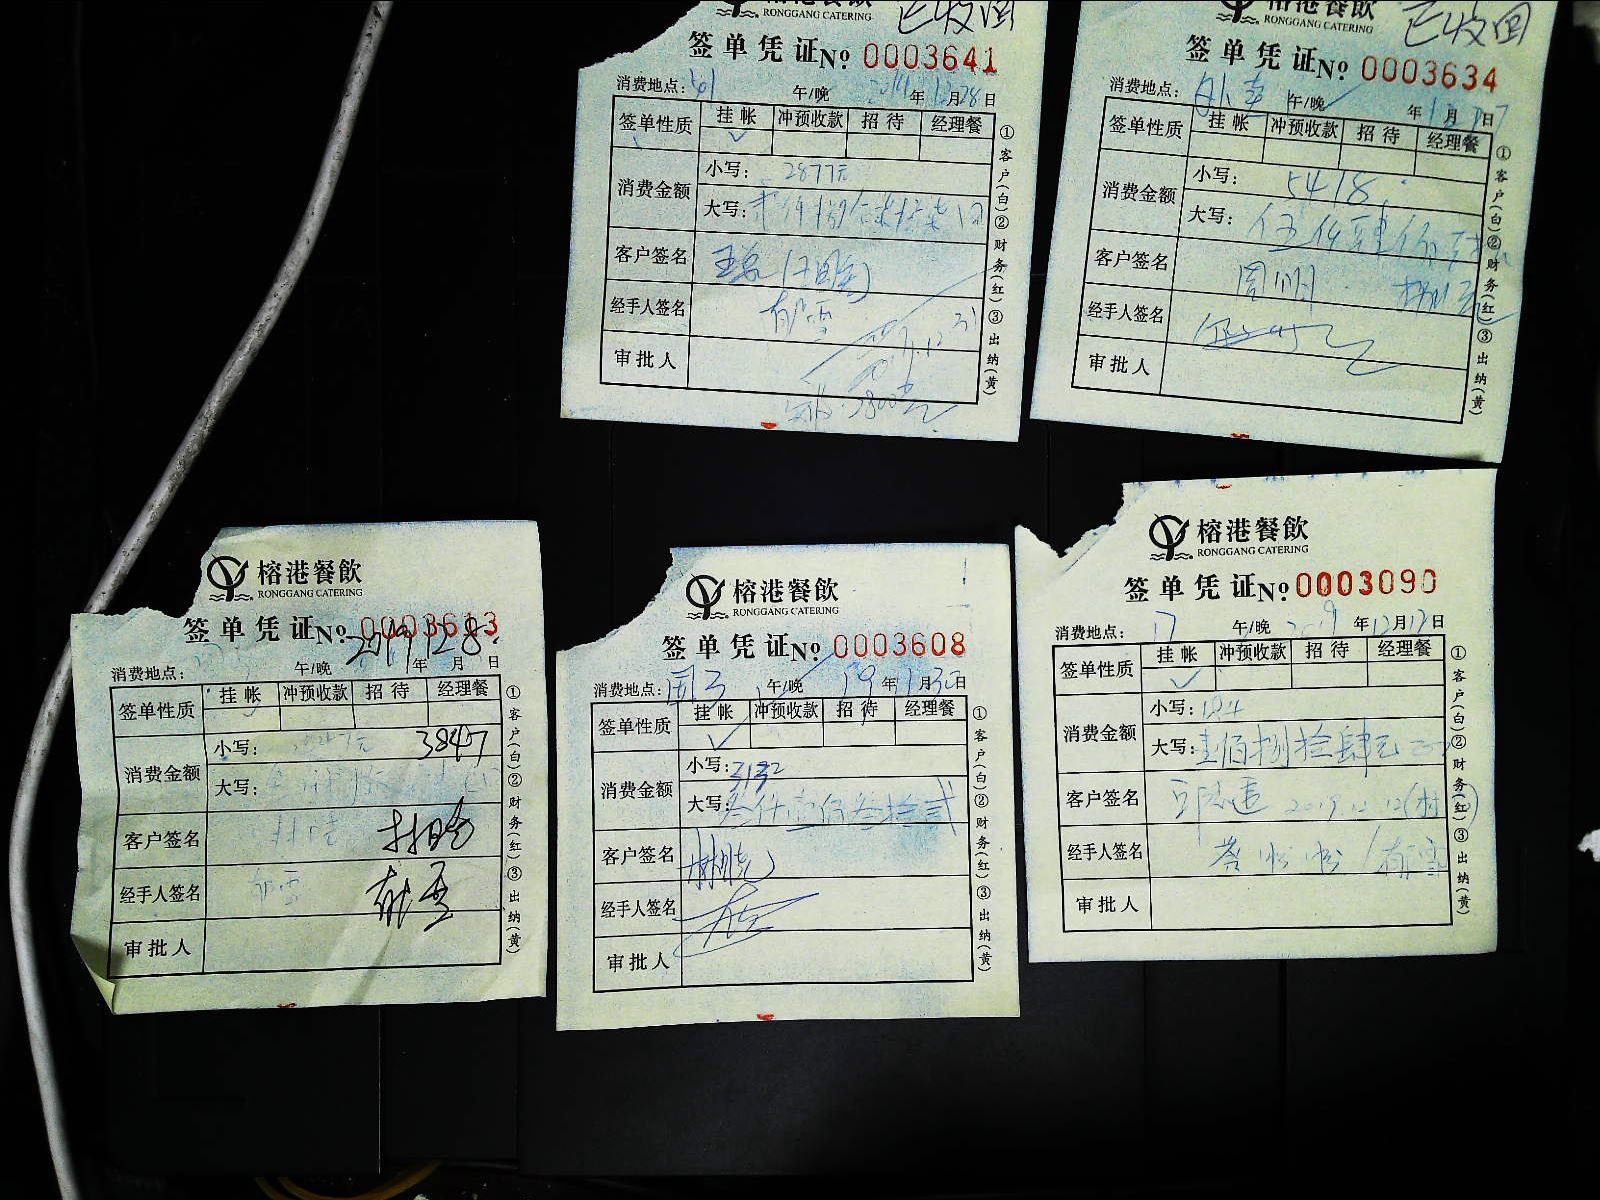 RONGGANG CATERING 已收回
签单凭证 No 0003641
消费地点: 午/晚 年12月28日
签单性质 挂帐 冲预收款 招待 经理餐
消费金额 小写: 2877元
大写:
客户签名
经手人签名 郁雪
审批人
①客户(白)②财务(红)③出纳(黄)
榕港餐飲
RONGGANG CATERING 已收回
签单凭证 No 0003634
消费地点: 午/晚 年1月 日
签单性质 挂帐 冲预收款 招待 经理餐
消费金额 小写: 5418
大写: 伍仟肆佰
客户签名
经手人签名
审批人
①客户(白)②财务(红)③出纳(黄)
榕港餐飲
RONGGANG CATERING
签单凭证 No 0003613
消费地点: 午/晚 2019 12 8 年 月 日
签单性质 挂帐 冲预收款 招待 经理餐
消费金额 小写: 3847
大写:
客户签名
经手人签名 郁雪
审批人
①客户(白)②财务(红)③出纳(黄)
榕港餐飲
RONGGANG CATERING
签单凭证 No 0003608
消费地点: 午/晚 19年1月30日
签单性质 挂帐 冲预收款 招待 经理餐
消费金额 小写: 3132
大写: 叁仟壹佰叁拾贰
客户签名
经手人签名
审批人
①客户(白)②财务(红)③出纳(黄)
榕港餐飲
RONGGANG CATERING
签单凭证 No 0003090
消费地点: 17 午/晚 2019年12月12日
签单性质 挂帐 冲预收款 招待 经理餐
消费金额 小写: 184
大写: 壹佰捌拾肆元
客户签名 2019 12 12
经手人签名
审批人
①客户(白)②财务(红)③出纳(黄)